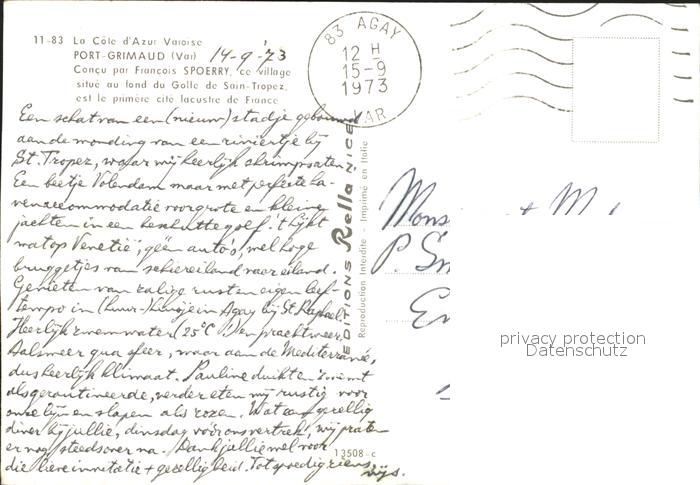 11-83 La Côte d'Azur Varoise
PORT-GRIMAUD (Var) 14-9-'73
Conçu par François SPOERRY, ce village
situé au fond du Golfe de Sain-Tropez,
est le première cité lacustre de France
Een schat van een (nieuw) stadje gebouwd
aan de monding van een riviertje bij
St. Tropez, waar wij heerlijk chrimps aten.
Een beetje Volendam maar met perfecte ha-
venaccommodatie voor grote en kleine
jachten in een beschutte golf. 't Lijkt
wat op "Venetië", géén auto's, wel hoge
bruggetjes van schiereiland naar eiland.
Genieten van zalige rust en eigen leef-
tempo in (huur-)huisje in Agay bij St Raphaël.
Heerlijk zwemwater (25°C!) en prachtweer,
Aalsmeer qua sfeer, maar aan de Mediterranée,
dus heerlijk klimaat. Pauline duikt en zwemt
als gerontineerde, verder eten wij rustig voor
onze lijn en slapen als rozen. Wat een gezellig
diner bij jullie, dinsdag vóór ons vertrek!, wij praten
er nog steeds over na. Dank jullie wel voor
die lieve invitatie + gezelligheid. Tot spoedig ziens
wijs.
83 AGAY
12 H
15-9
1973
VAR
EDITIONS Rella NICE
Reproduction Interdite - Imprimé en Italie
13508-c
Mons + M
P. Sm
En
privacy protection
Datenschutz